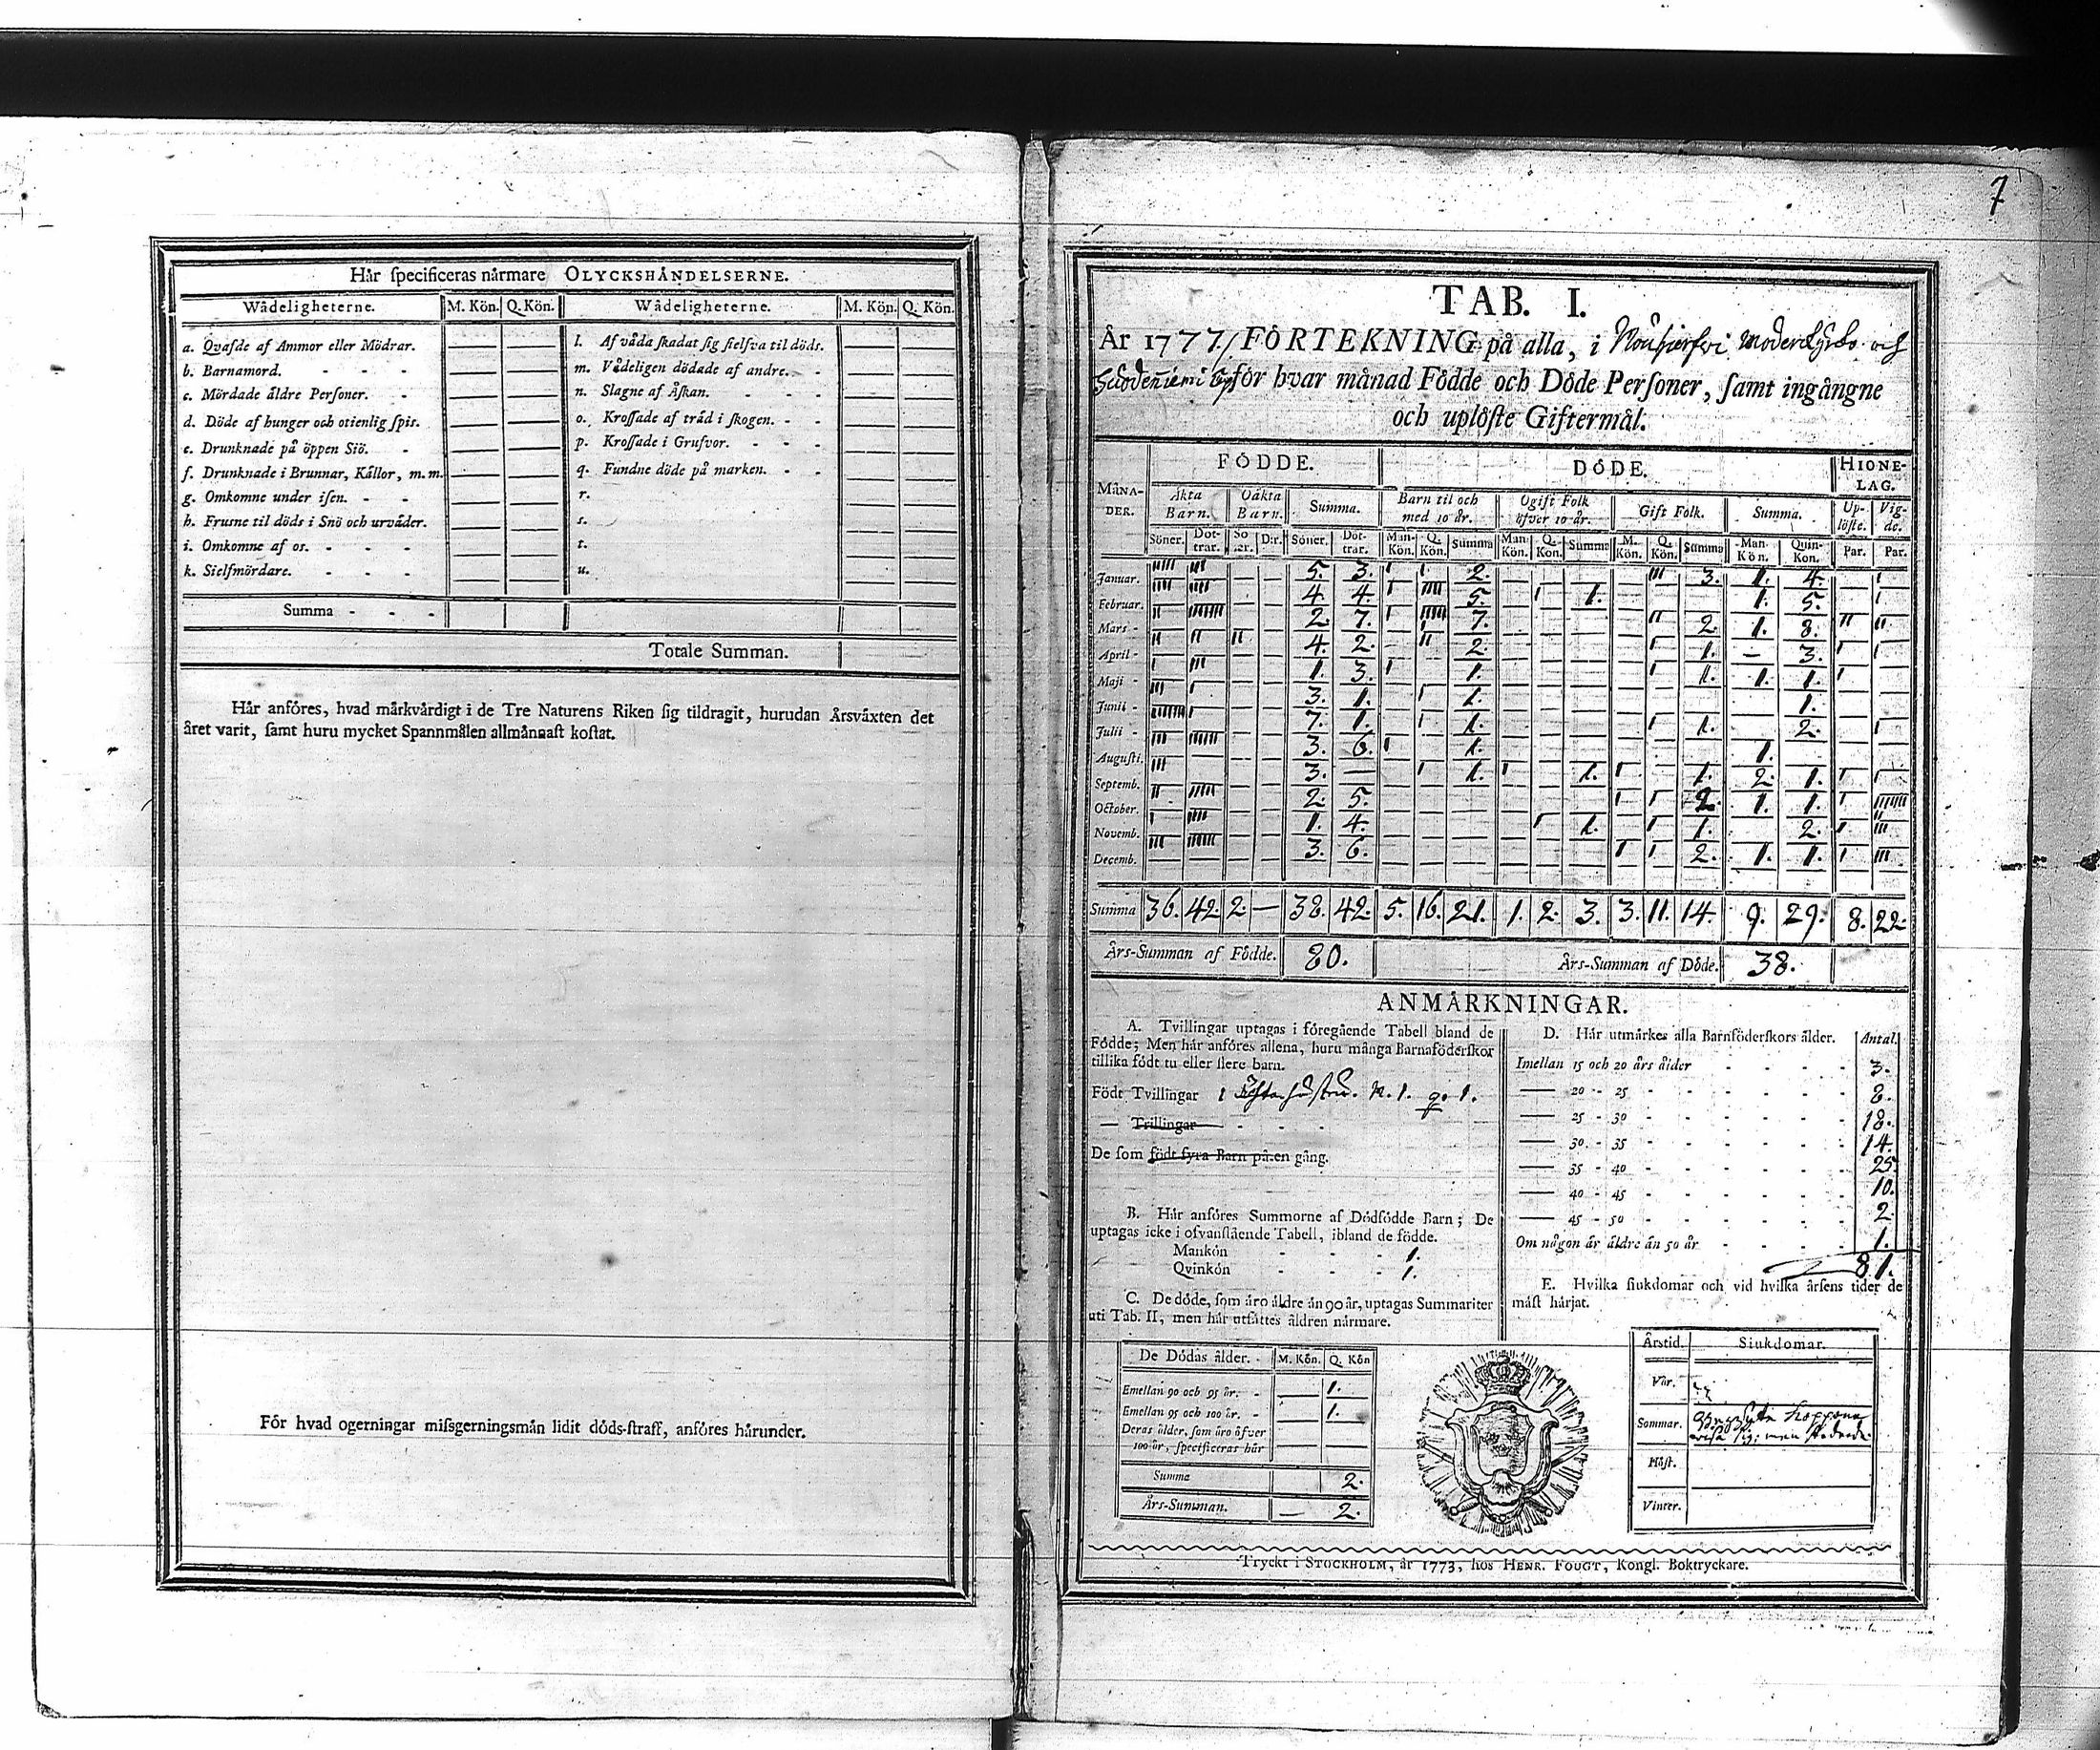 Här specificeras närmare OLYCKSHÄNDELSERNE.
Wådeligheterne. M. Kön. Q. Kön. Wådeligheterne. M. Kön. Q. Kön.
a. Qvafde af Ammor eller Mödrar. — — l. Af våda skadat sig sielfva til döds. — —
b. Barnamord. - - - — — m. Vådeligen dödade af andre. - — —
c. Mördade äldre Personer. - — — n. Slagne af Åskan. - - - — —
d. Döde af hunger och otienlig spis. — — o. Krossade af träd i skogen. - - — —
e. Drunknade på öppen Siö. - — — p. Krossade i Grufvor. - - - — —
f. Drunknade i Brunnar, Källor, m. m. — — q. Fundne döde på marken. - - — —
g. Omkomne under isen. - - — — r. — —
h. Frusne til döds i Snö och urväder. — — s. — —
i. Omkomne af os. - - - — — t. — —
k. Sielfmördare. - - - — — u. — —
Summa - - -
Totale Summan.
Här anföres, hvad märkvärdigt i de Tre Naturens Riken sig tildragit, hurudan Årsväxten det
året varit, samt huru mycket Spannmålen allmännast kostat.
För hvad ogerningar missgerningsmän lidit döds-straff, anföres härunder.
7
TAB. I.
År 1777. FÖRTEKNING på alla, i Moderkyrko och
för hvar månad Födde och Döde Personer, samt ingångne
och uplöste Giftermål.
MÅNADER. FÖDDE. DÖDE. HIONELAG.
Äkta Barn. Oäkta Barn. Summa. Barn til och med 10 år. Ogift Folk öfver 10 år. Gift Folk. Summa. Uplöste. Vigde.
Söner. Döttrar. Söner. Dr. Söner. Döttrar. Man-Kön. Q. Kön. Summa Man-Kön. Q. Kön. Summa M. Kön. Q. Kön. Summa Man-Kön. Quin-Kon. Par. Par.
Januar. 5. 3. 2. 3. 1. 4.
Februar. 4. 4. 5. 1. 1. 5.
Mars - 2. 7. 7. 2. 1. 8.
April - 4. 2. 2. 1. — 3.
Maji - 1. 3. 1. 1. 1. 1.
Junii - 3. 1. 1. 1.
Julii - 7. 1. 1. 1. 2.
Augusti. 3. 6. 1. 1.
Septemb. 3. — 1. 1. 1. 2. 1.
October. 2. 5. 2. 1. 1.
Novemb. 1. 4. 1. 1. 2.
Decemb. 3. 6. 2. 1. 1.
Summa 36. 42. 2. — 38. 42. 5. 16. 21. 1. 2. 3. 3. 11. 14. 9. 29. 8. 22.
Års-Summan af Födde. 80. Års-Summan af Döde. 38.
ANMÄRKNINGAR.
A. Tvillingar uptagas i föregående Tabell bland de
Födde; Men här anföres allena, huru många Barnaföderskor
tillika födt tu eller flere barn.
Födt Tvillingar 1 hustru. M. 1. q. 1.
— Trillingar - - -
De som födt fyra Barn på en gång.
B. Här anföres Summorne af Dödfödde Barn; De
uptagas icke i ofvanstående Tabell, ibland de födde.
Mankön - - - 1.
Qvinkön - - - 1.
C. De döde, som äro äldre än 90 år, uptagas Summariter
uti Tab. II, men här utsättes åldren närmare.
De Dödas ålder. M. Kön. Q. Kön
Emellan 90 och 95 år. - — 1.
Emellan 95 och 100 år. - — 1.
Deras ålder, som äro öfver
100 år, specificeras här — —
Summa 2.
Års-Summan. — 2.
D. Här utmärkes alla Barnföderskors ålder. Antal.
Imellan 15 och 20 års ålder - - - - 3.
— 20 - 25 - - - - 8.
— 25 - 30 - - - - 18.
— 30 - 35 - - - - 14.
— 35 - 40 - - - - 25.
— 40 - 45 - - - - 10.
— 45 - 50 - - - - 2.
Om någon är äldre än 50 år - - - - 1.
81.
E. Hvilka siukdomar och vid hvilka årsens tider de
mäst härjat.
Årstid. Siukdomar.
Vår.
Sommar. Koppor
sig; men
Höst.
Vinter.
Tryckt i STOCKHOLM, år 1773, hos HENR. FOUGT, Kongl. Boktryckare.